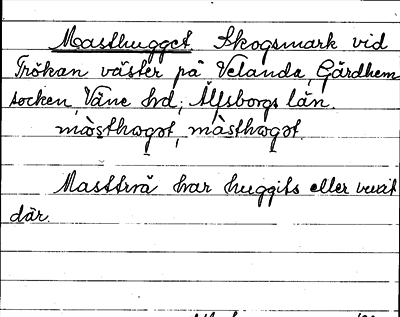 Masthugget. Skogsmark vid
Trökan väster på Velanda, Gärdhem
socken, Väne hd, Älfsborgs län.
màsthωgət, màsthωgət.
Mastträ har huggits eller vuxit
där.